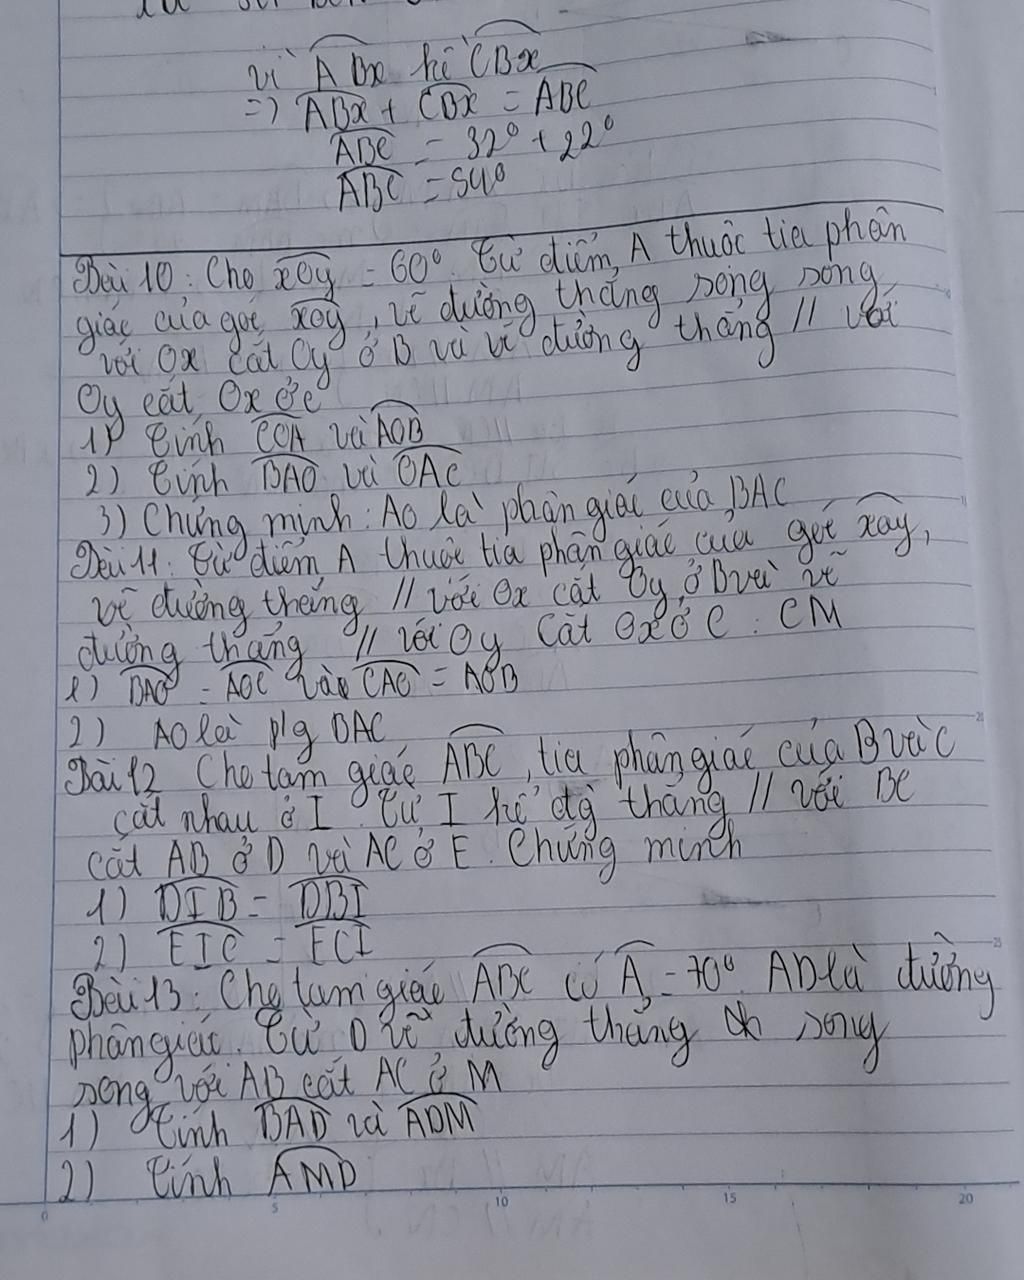 vì ABx kề CBx
=> ABx + CBx = ABC
ABC = 32° + 22°
ABC = 54°
Bài 10: Cho xOy = 60°. Từ điểm A thuộc tia phân
giác của góc xOy, vẽ đường thẳng song song
với Ox cắt Oy ở B và vẽ đường thẳng // với
Oy cắt Ox ở C
1) Tính COA và AOB
2) Tính BAO và OAC
3) Chứng minh: AO là phân giác của BAC
Bài 11: Từ điểm A thuộc tia phân giác của góc xOy,
vẽ đường thẳng // với Ox cắt Oy ở B và vẽ
đường thẳng // với Oy cắt Ox ở C : CM
1) BAO = AOC và CAO = AOB
2) AO là p/g BAC
Bài 12 Cho tam giác ABC, tia phân giác của B và C
cắt nhau ở I. Từ I kẻ đg thẳng // với BC
cắt AB ở D và AC ở E. Chứng minh
1) DIB = DBI
2) EIC = ECI
Bài 13: Cho tam giác ABC có A = 70° AD là đường
phân giác. Từ D vẽ đường thẳng song
song với AB cắt AC ở M
1) Tính BAD và ADM
2) Tính AMD
0 5 10 15 20